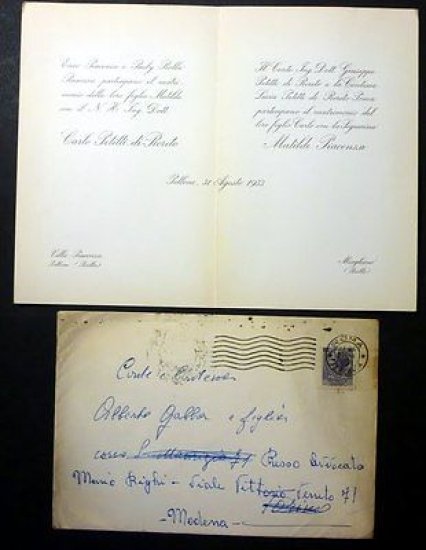 Enzo Piacenza e Pauly Rolla
Piacenza partecipano il matri-
monio della loro figlia Matilde
con il N. H. Ing. Dott.
Carlo Petitti di Roreto
Il Conte Ing. Dott. Giuseppe
Petitti di Roreto e la Contessa
Luisa Petitti di Roreto
partecipano il matrimonio del
loro figlio Carlo con la Signorina
Matilde Piacenza
Pollone, 31 Agosto 1953
Villa Piacenza
Pollone (Biella)
(Biella)
Conte e Contessa
Alberto Gabba e figli
corso 71 Presso Avvocato
Mario Righi - Viale Vittorio Veneto 71
Torino
- Modena -